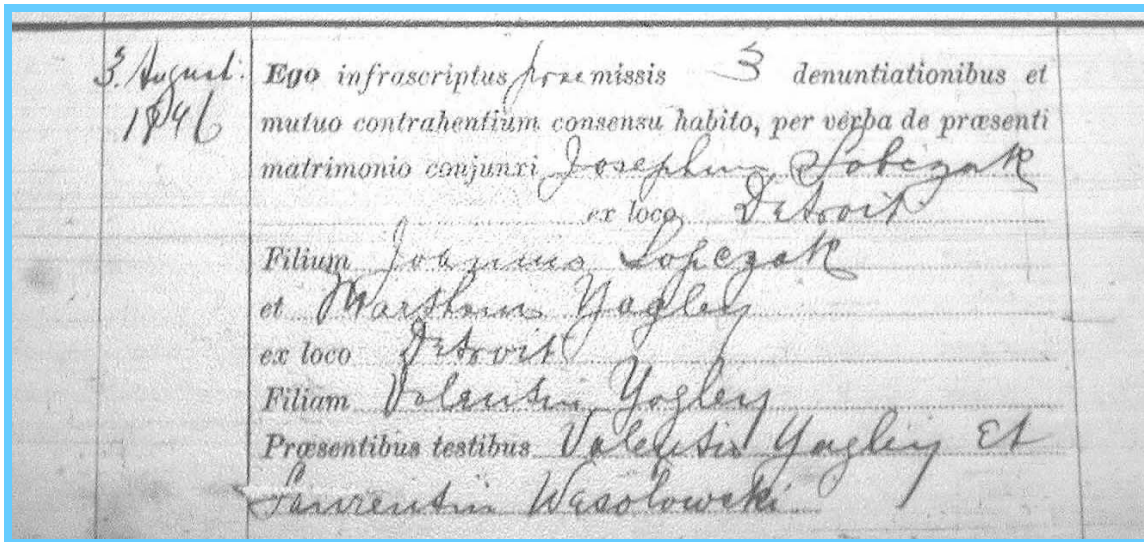 3. August.
1896
Ego infrascriptus praemissis 3 denuntiationibus et
mutuo contrahentium consensu habito, per verba de præsenti
matrimonio conjunxi Josephum Sobczak
ex loco Detroit
Filium Joannis Sopczak
et Martham Yagley
ex loco Detroit
Filiam Valentin Yagley
Præsentibus testibus Valentin Yagley Et
Laurentin Wesolowski